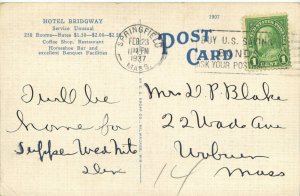 HOTEL BRIDGWAY
Service Unusual
250 Rooms—Rates $1.50-$2.00-$2.50
Coffee Shop, Restaurant
Horseshoe Bar and
excellent Banquet Facilities
1907
POST CARD
SPRINGFIELD
FEB 23
1937
MASS.
BUY U.S. SAVINGS
BONDS
ASK YOUR POST
1 CENT 1
I will be
home for
suppe Wed nite
Mrs D P Blake
22 Wade Ave
Woburn
Mass
14